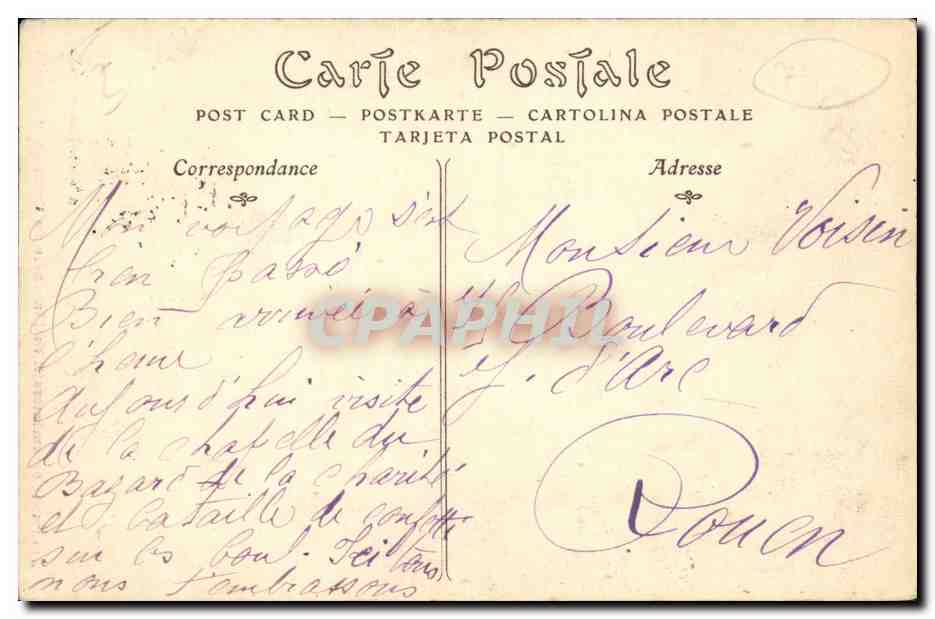 Carte Postale
POST CARD — POSTKARTE — CARTOLINA POSTALE
TARJETA POSTAL
Correspondance
Adresse
Mon voyage s'est
bien passé
Bien arrivée à
l'heure
Aujourd'hui visite
de la chapelle du
Bazard de la charité
et bataille de confetti
sur les boul. Ici tous
nous t'embrassons
Monsieur Voisin
Boulevard
J. d'Arc
Rouen
CPAPHIL